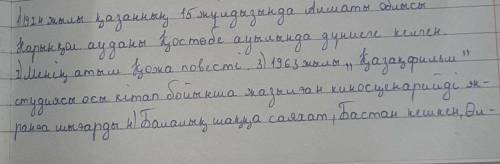 1) 1924 жылы қазанның 15 жұлдызында Алматы облысы
Нарынқол ауданы Қостөбе ауылында дүниеге келген.
2) Менің атым Қожа повесті 3) 1963 жылы „Қазақфильм"
студиясы осы кітап бойынша жазылған киносценарийді эк-
ранға шығарды 4) Балалық шаққа саяхат, Бастан кешкен, Әл-